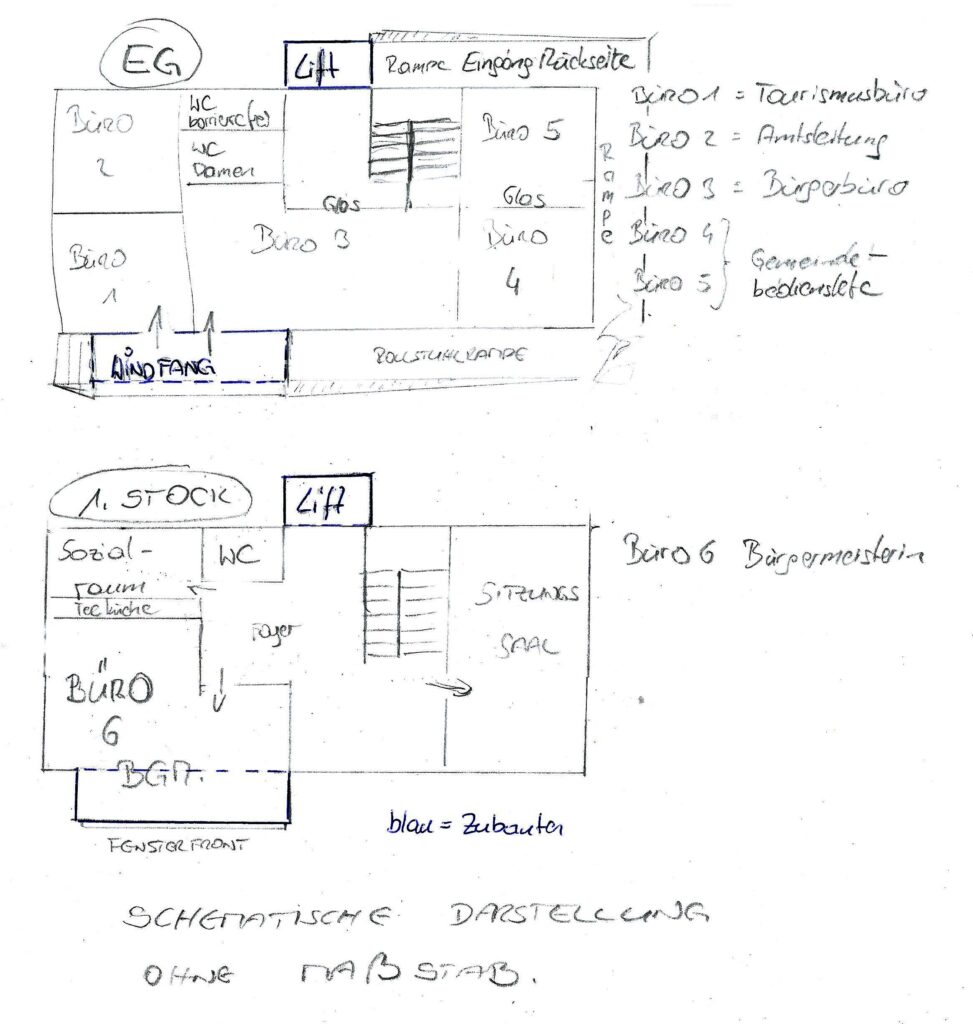 EG
Lift
Rampe Eingang Rückseite
Büro
2
WC
barrierefrei
WC
Damen
Büro 5
Glas
Glas
Büro 3
Büro
4
Büro
1
Rampe
WINDFANG
ROLLSTUHLRAMPE
Büro 1 = Tourismusbüro
Büro 2 = Amtsleitung
Büro 3 = Bürgerbüro
Büro 4
Büro 5
Gemeinde-
bedienstete
1. STOCK
Lift
Sozial-
raum
Teeküche
WC
Foyer
SITZUNGS
SAAL
BÜRO
6
BGM.
FENSTERFRONT
Büro 6 Bürgermeisterin
blau = Zubauten
SCHEMATISCHE DARSTELLUNG
OHNE MAßSTAB.